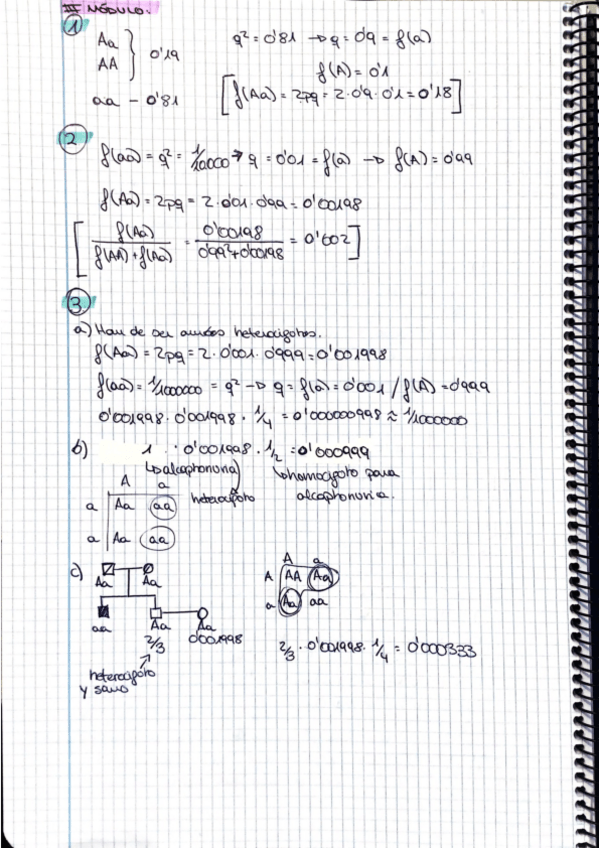 III MÓDULO.
1
Aa
AA
0'19
aa - 0'81
q² = 0'81 → q = 0'9 = f(a)
f(A) = 0'1
[f(Aa) = 2pq = 2·0'9·0'1 = 0'18]
2
f(aa) = q² = 1/10000 → q = 0'01 = f(a) → f(A) = 0'99
f(Aa) = 2pq = 2·0'01·0'99 = 0'00198
[f(Aa) / f(AA)+f(Aa) = 0'00198 / 0'99²+0'00198 = 0'002]
3
a) Han de ser ambos heterocigotos.
f(Aa) = 2pq = 2·0'001·0'999 = 0'001998
f(aa) = 1/1000000 = q² → q = f(a) = 0'001 / f(A) = 0'999
0'001998 · 0'001998 · 1/4 = 0'000000998 ≈ 1/1000000
b) 1 · 0'001998 · 1/2 = 0'000999
↳ alcaptonuria
heterocigoto
↳ homocigoto para
alcaptonuria.
A a
a Aa aa
a Aa aa
c)
Aa Aa
aa Aa Aa
2/3 0'001998
heterocigoto
y sano
A a
A AA Aa
a Aa aa
2/3 · 0'001998 · 1/4 = 0'000333